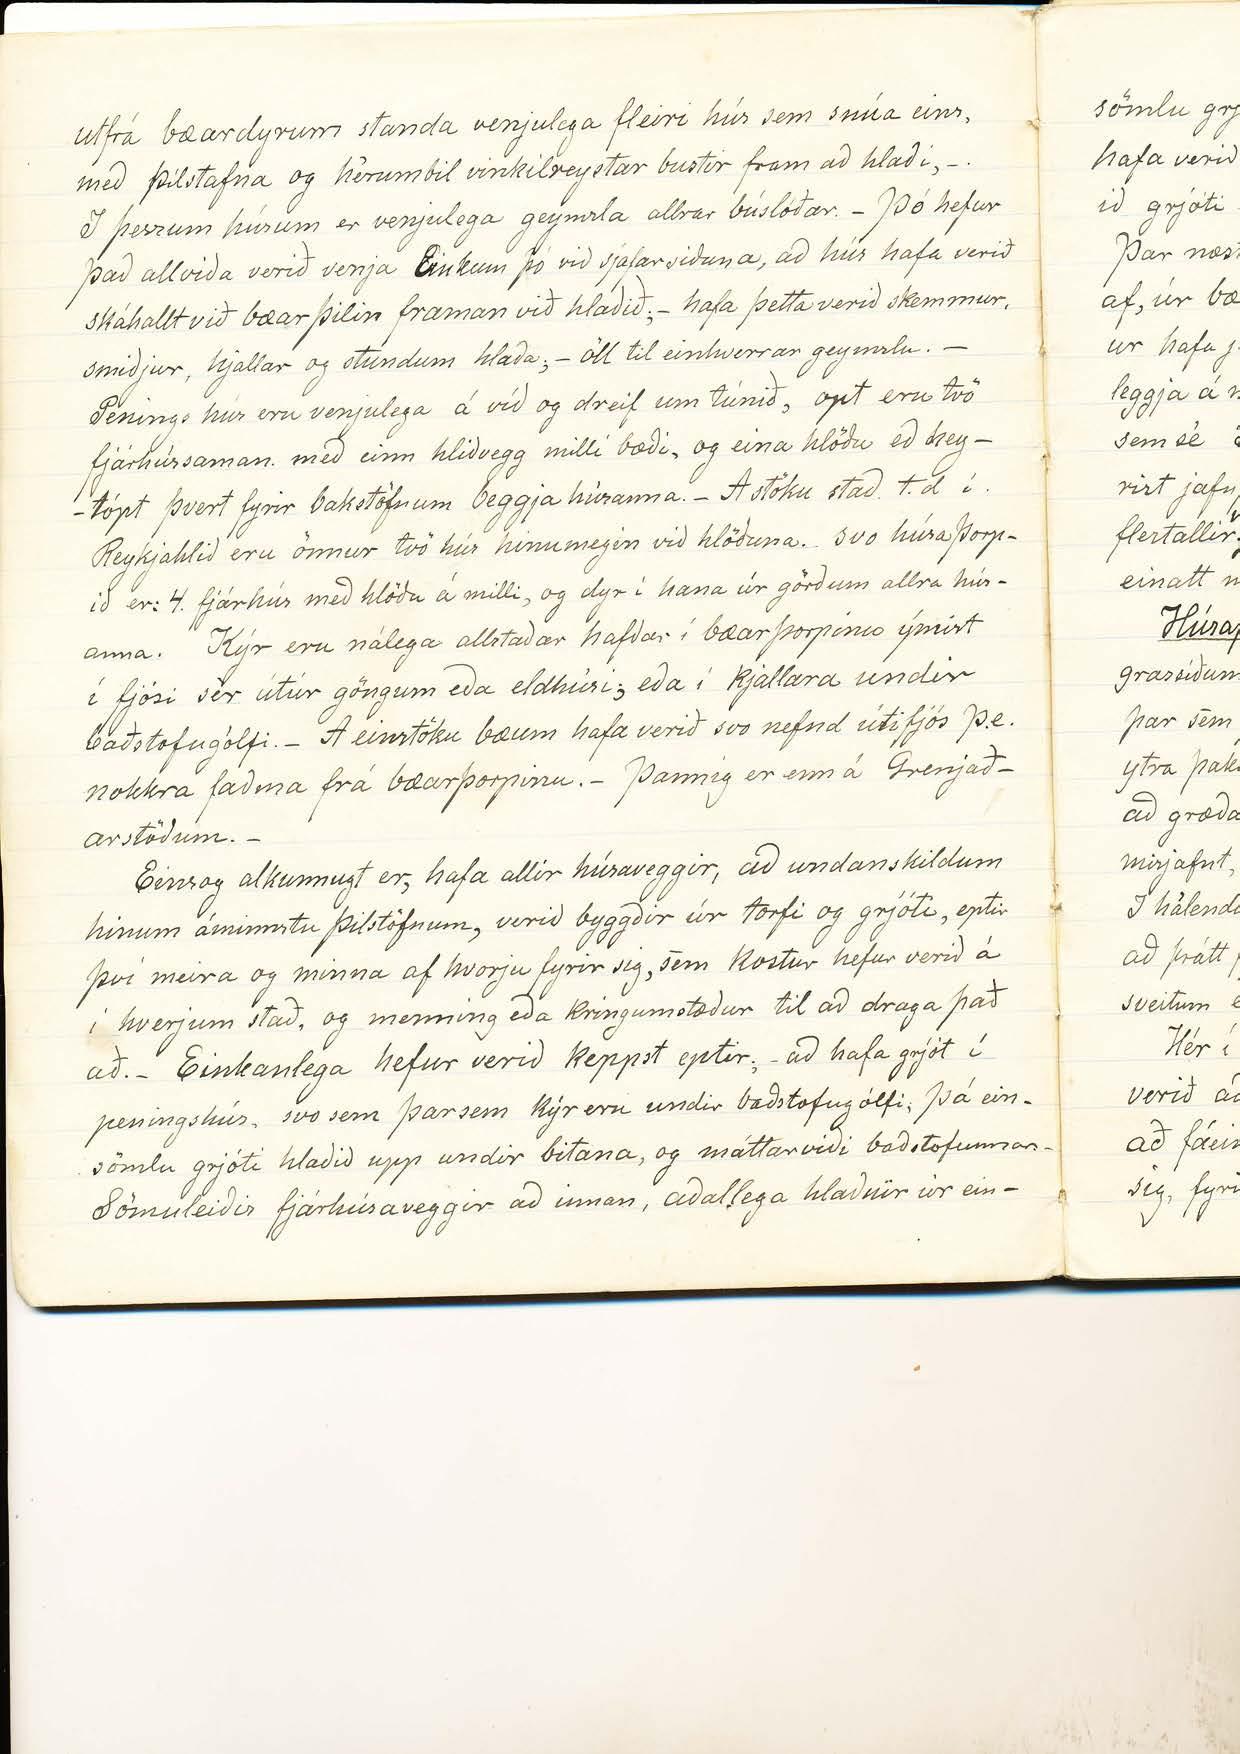 utfrá bæardyrum standa venjulega fleiri hús sem snúa eins,
með þilstafna og hérumbil vinkilreystar bustir fram að hlaði, -.
I þessum húsum er venjulega geymsla allrar búslóðar. - Þó hefur
það allviða verið venja Einkum þó við sjáfarsiðuna, að hús hafa verið
skáhallt við bæarþilin framan við hlaðið; - hafa þetta verið skemmur,
smiðjur, hjallar og stundum hlaða; - öll til einhverrar geymslu. -
Penings hús eru venjulega á víð og dreif um túnið, opt eru tvö
fjárhús saman. með einn hliðvegg milli bæði, og eina hlöðu eð hey-
-tópt þvert fyrir bakstöfnum beggja húsanna. - A stöku stað t.d í.
Reykjahlið eru önnur tvö hús hinumegin við hlöðuna. svo húsaþorp-
ið er: 4. fjárhús með hlöðu á milli, og dyr í hana úr görðum allra hús-
anna. Kýr eru nálega allstaðar hafðar í bæarþorpinu ýmist
í fjósi sér útúr göngum eða eldhúsi; eða í kjallara undir
baðstofugólfi. - A einstöku bæum hafa verið svo nefnd útifjós þ.e.
nokkra faðma frá bæarþorpinu. - Þannig er enn á Grenjað-
arstöðum. -
Einsog alkunnugt er, hafa allir húsaveggir, að undanskildum
hinum áminnstu þilstöfnum, verið byggðir úr torfi og grjóti, eptir
því meira og minna af hvorju fyrir sig, sem kostur hefur verið á
í hverjum stað, og menning eða kringumstæður til að draga það
að. - Einkanlega hefur verið keppst eptir; - að hafa grjót í
peningshús, svo sem þar sem kýr eru undir baðstofugólfi; þá ein-
sömlu grjóti hlaðið upp undir bitana, og máttarviði baðstofunnar -
Sömuleiðis fjárhúsaveggir að innan, aðallega hlaðnir úr ein-
sömlu
hafa verið
ið grjóti
Þar
af, úr
ur hafa
leggja á
sem sé
rist
flestallir
einatt
þar sem
ytra
að græða
misjafnt,
að þrátt
sveitum
Hér í
verið
að
sig,